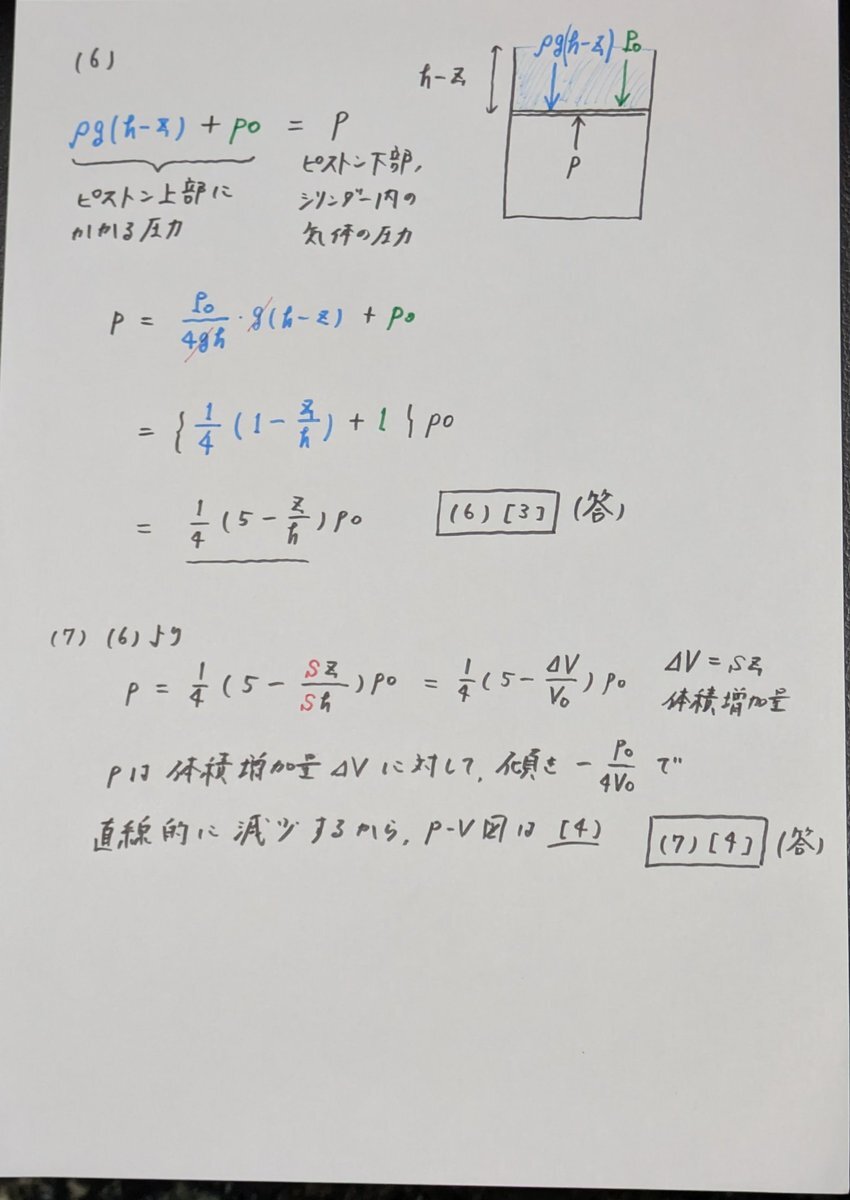 (6)
ρg(h-z) + p0 = p
ピストン上部に
かかる圧力
ピストン下部,
シリンダー内の
気体の圧力
h-z
ρg(h-z) p0
p
p = p0/4gh · g(h-z) + p0
= { 1/4 (1 - z/h) + 1 } p0
= 1/4 (5 - z/h) p0
(6) [3] (答)
(7) (6)より
p = 1/4 (5 - Sz/Sh) p0 = 1/4 (5 - ΔV/V0) p0
ΔV = Sz
体積増加量
pは体積増加量ΔVに対して, 傾き - p0/4V0 で
直線的に減少するから, p-V図は [4]
(7) [4] (答)